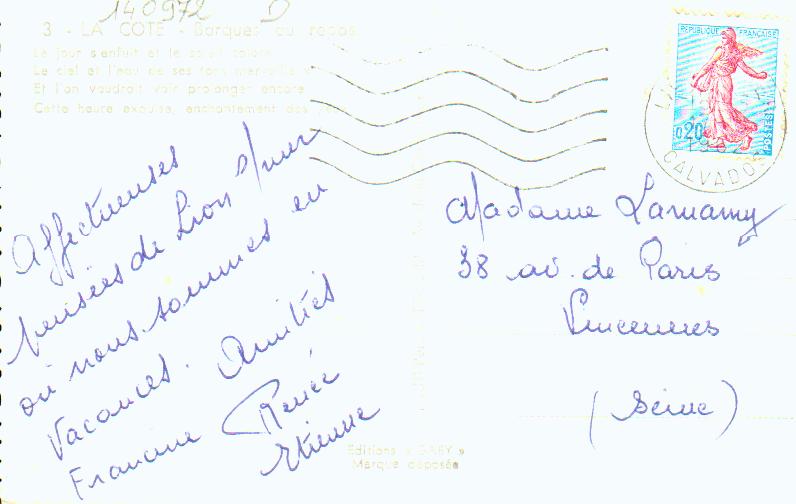 140972 D
3 - LA COTE - Barques au repos
Le jour s'enfuit et le soleil colore
Le ciel et l'eau de ses tons merveilleux
Et l'on voudrait voir prolonger encore
Cette heure exquise, enchantement des yeux
REPUBLIQUE FRANÇAISE
0,20
POSTES
CALVADOS
Affectueuses
pensées de Lion s/mer
où nous sommes en
Vacances. Amitiés
Francine Renée
Etienne
Madame Lamamy
38 av. de Paris
Vincennes
(Seine)
Editions « GABY »
Marque déposée